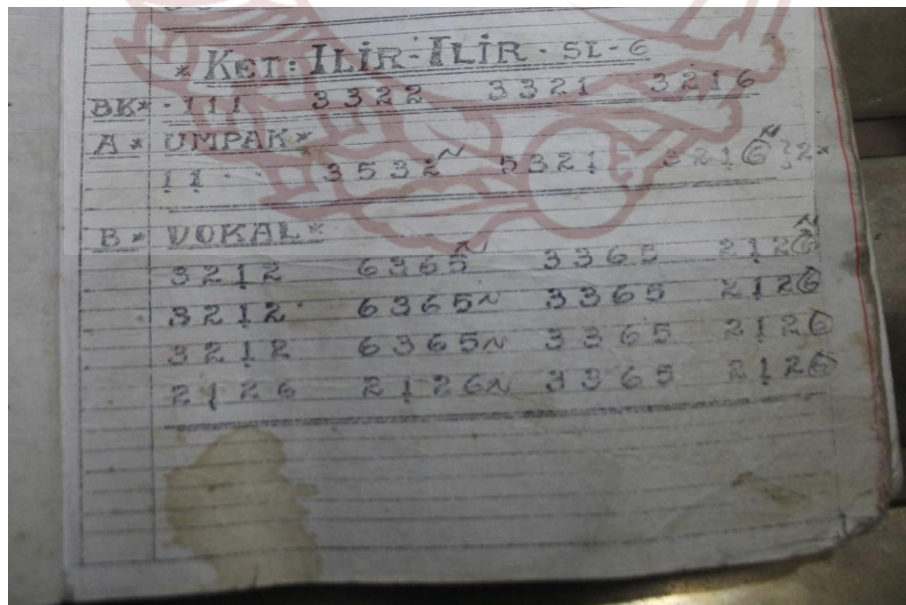 * KET: ILIR-ILIR - SL-6
BK* · 111 3322 3321 3216
A* UMPAK*
11·· 3532~ 5321 3216~ }2*
B* VOKAL*
3212 6365~ 3365 2126~
3212 6365~ 3365 2126
3212 6365~ 3365 2126
2126 2126~ 3365 2126